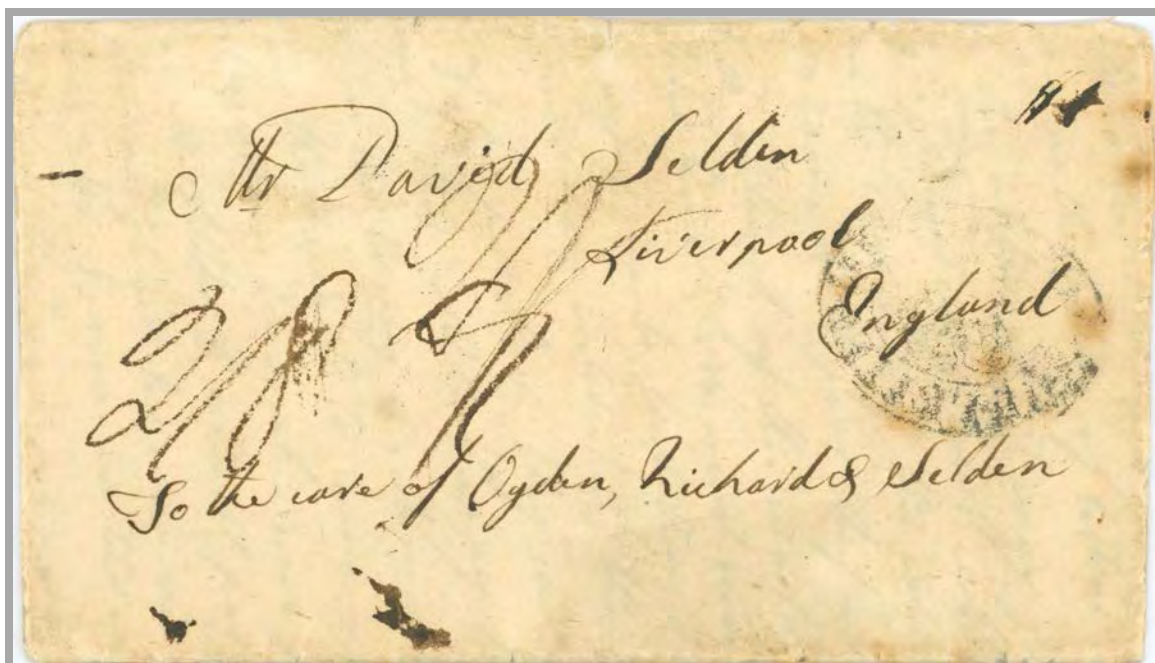 Mr David Selden
Liverpool
England
To the care of Ogden, Richard & Selden